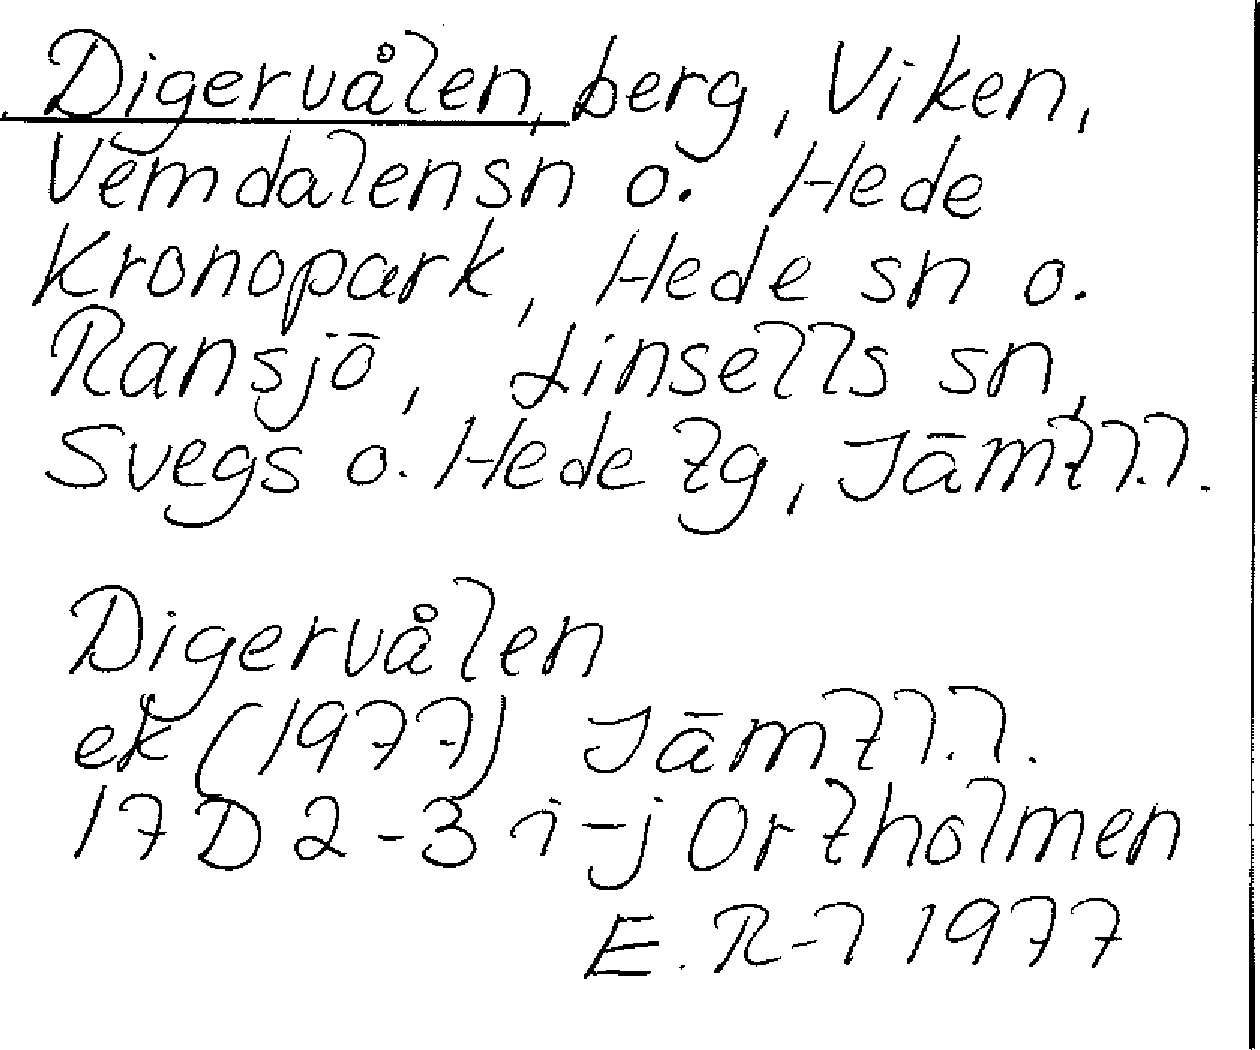 Digervålen, berg, Viken,
Vemdalen sn o. Hede
Kronopark, Hede sn o.
Ransjö, Linsells sn,
Svegs o. Hede tg, Jämtl.l.
Digervålen
ek (1977) Jämtl.l.
17D 2-3 i-j Ortholmen
E. R-l 1977